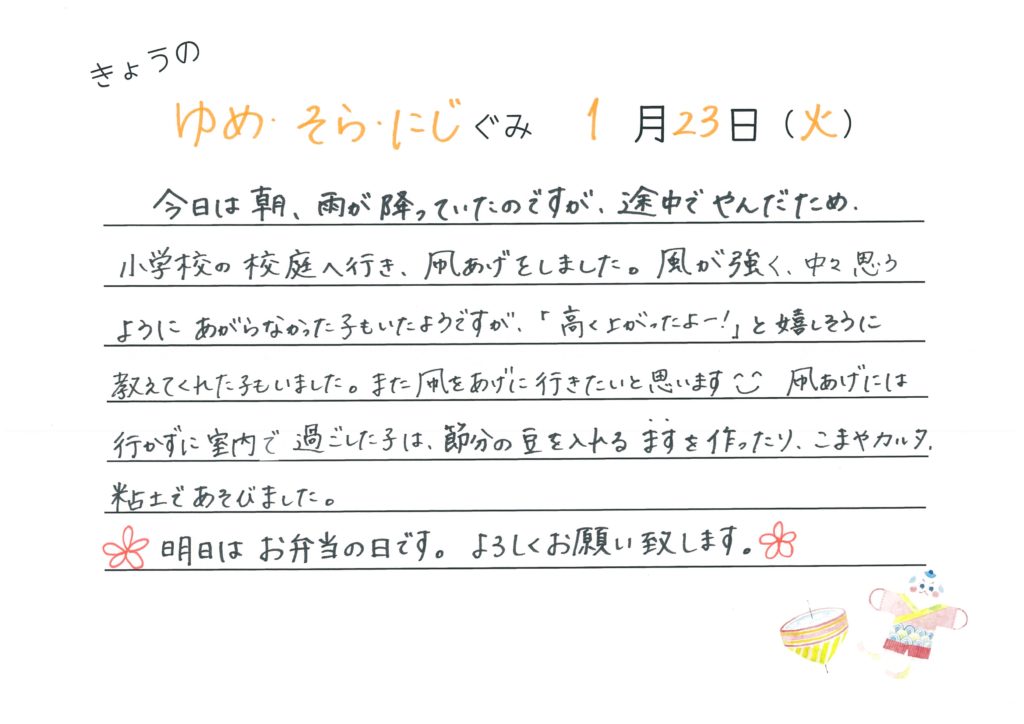 きょうの
ゆめ・そら・にじぐみ 1月23日（火）
今日は朝、雨が降っていたのですが、途中でやんだため、
小学校の校庭へ行き、凧あげをしました。風が強く、中々思う
ようにあがらなかった子もいたようですが、「高く上がったよー！」と嬉しそうに
教えてくれた子もいました。また凧をあげに行きたいと思います 凧あげには
行かずに室内で過ごした子は、節分の豆を入れるますを作ったり、こまやカルタ、
粘土であそびました。
明日はお弁当の日です。よろしくお願い致します。